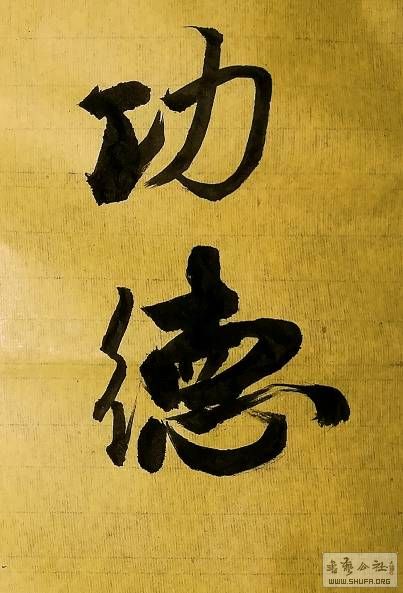 功
德
书艺公社
WWW.SHUFA.ORG